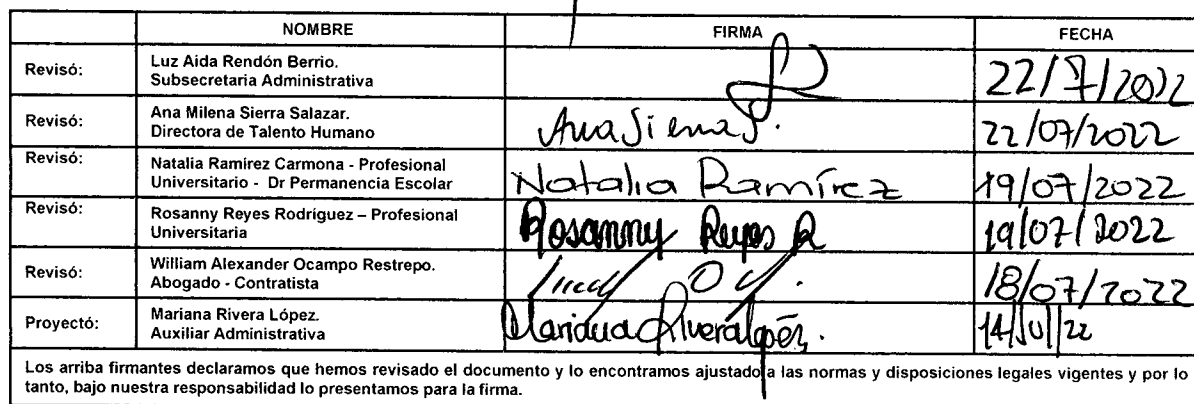 NOMBRE FIRMA FECHA
Revisó: Luz Aida Rendón Berrio.
Subsecretaria Administrativa
22/7/2022
Revisó: Ana Milena Sierra Salazar.
Directora de Talento Humano
Ana Sierra S. 22/07/2022
Revisó: Natalia Ramírez Carmona - Profesional
Universitario - Dr Permanencia Escolar
Natalia Ramírez 19/07/2022
Revisó: Rosanny Reyes Rodríguez – Profesional
Universitaria
Rosanny Reyes R 19/07/2022
Revisó: William Alexander Ocampo Restrepo.
Abogado - Contratista
18/07/2022
Proyectó: Mariana Rivera López.
Auxiliar Administrativa
Mariana Rivera López. 14/Jul/22
Los arriba firmantes declaramos que hemos revisado el documento y lo encontramos ajustado a las normas y disposiciones legales vigentes y por lo
tanto, bajo nuestra responsabilidad lo presentamos para la firma.